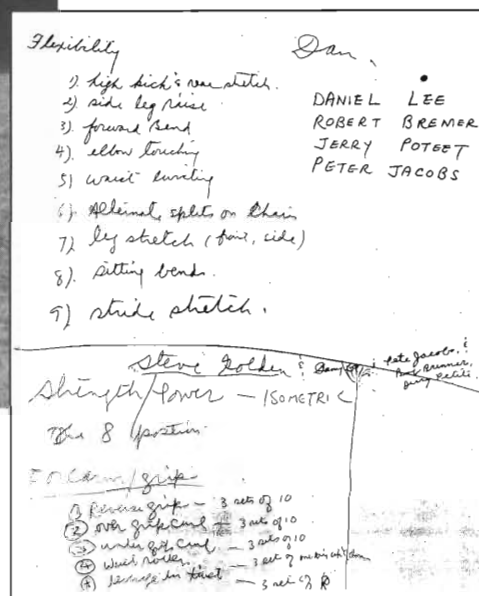 Flexibility
Dan,
1). high kick & rear stretch.
2) side leg raise
3). forward Bend
4). elbow touching
5) waist twisting
6). Alternate splits on Chair
7) leg stretch (front, side)
8). sitting bends.
9) stride stretch.
DANIEL LEE
ROBERT BREMER
JERRY POTEET
PETER JACOBS
Steve Golden & Dan
Pete Jacobs, &
Strength/Power — ISOMETRIC
The 8 position
Forearm/grip
① Reverse grip — 3 sets of 10
② over grip curl — 3 sets of 10
③ under grip curl — 3 sets of 10
④ Wrist roller — 3 set of
3 set of